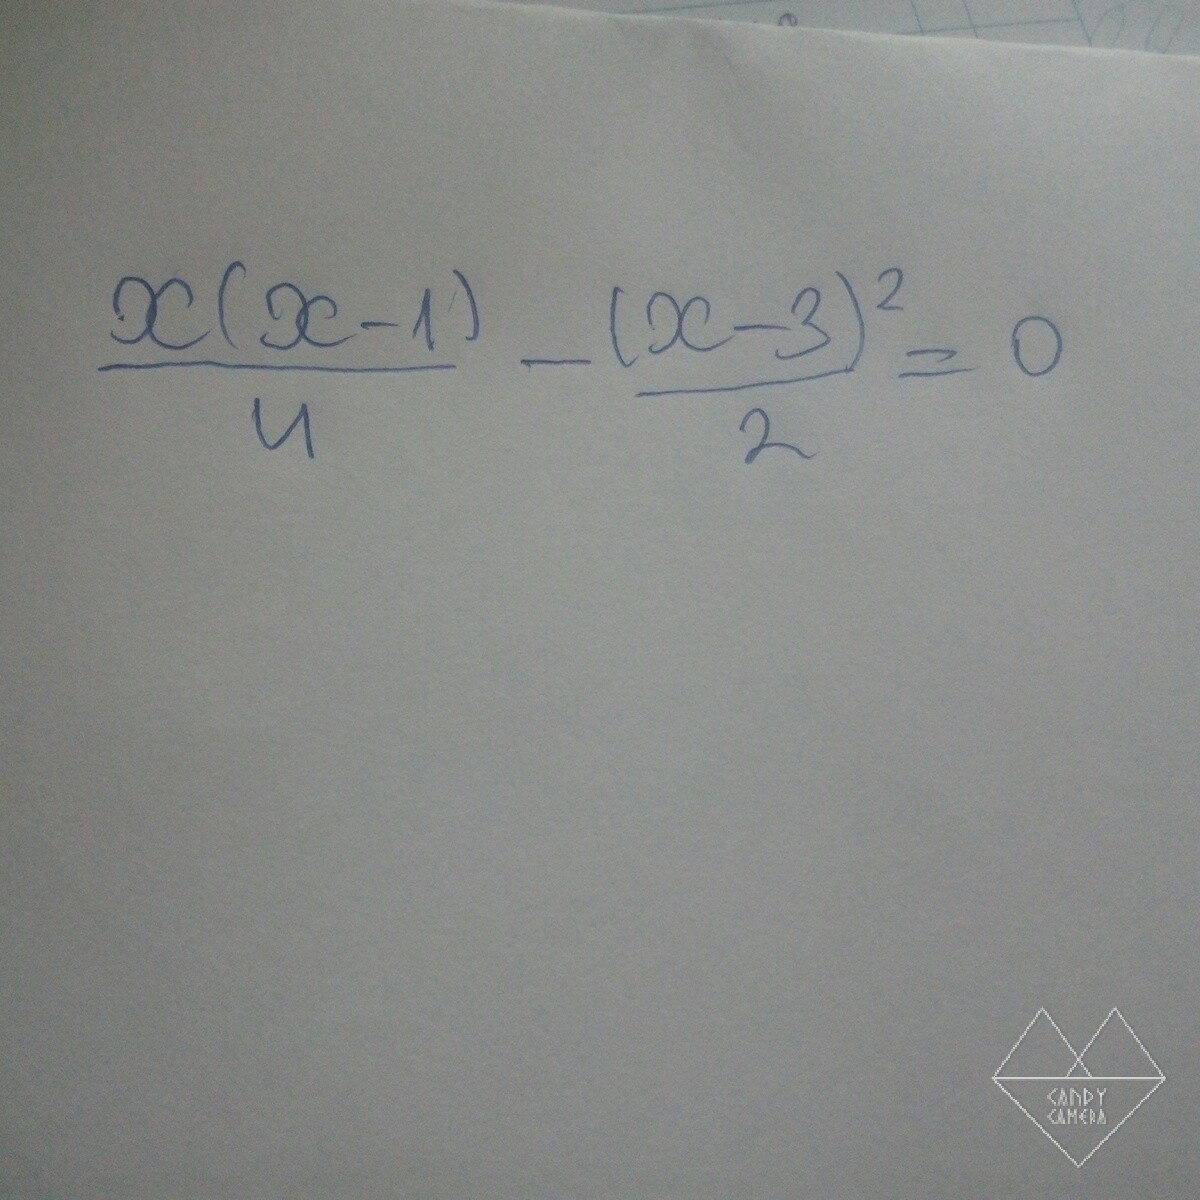 x(x-1)/4 - (x-3)²/2 = 0
CANDY
CAMERA